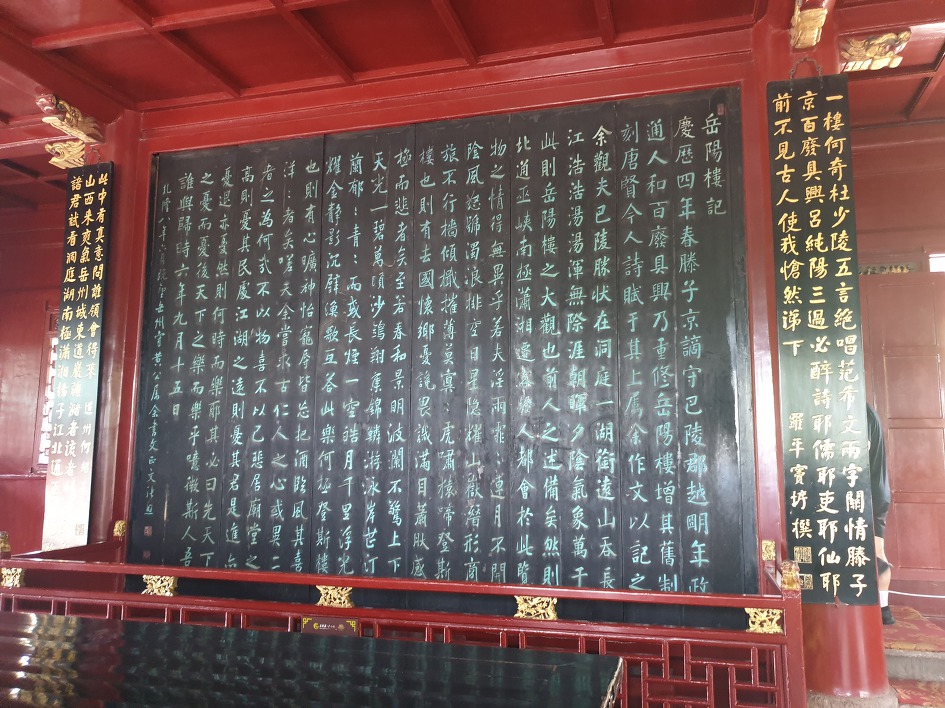 一樓何奇杜少陵五言絕唱范希文兩字關情滕子
京百廢具興呂純陽三過必醉詩耶儒耶吏耶仙耶
前不見古人使我愴然涕下
羅平竇垿撰
岳陽樓記
慶歷四年春滕子京謫守巴陵郡越明年政
通人和百廢具興乃重修岳陽樓增其舊制
刻唐賢今人詩賦于其上屬余作文以記之
余觀夫巴陵勝狀在洞庭一湖銜遠山吞長
江浩浩湯湯渾無際涯朝暉夕陰氣象萬千
此則岳陽樓之大觀也前人之述備矣然則
北通巫峽南極瀟湘遷客騷人都會於此覽
物之情得無異乎若夫淫雨霏霏連月不開
陰風怒號濁浪排空日星隱耀山嶽潛形商
旅不行檣傾楫摧薄暮冥冥虎嘯猿啼登斯
樓也則有去國懷鄉憂讒畏譏滿目蕭然感
極而悲者矣至若春和景明波瀾不驚上下
天光一碧萬頃沙鷗翔集錦鱗游泳岸芷汀
蘭郁:青:而或長煙一空皓月千里浮光
耀金靜影沉璧漁歌互答此樂何極登斯樓
也則有心曠神怡寵辱皆忘把酒臨風其喜
洋:者矣嗟夫余嘗求古仁人之心或異二
者之為何哉不以物喜不以己悲居廟堂之
高則憂其民處江湖之遠則憂其君是進亦
憂退亦憂然則何時而樂耶其必曰先天下
之憂而憂後天下之樂而樂乎噫微斯人吾
誰與歸時六年九月十五日
此中有真意問誰領會得來
道州何紹
山西來爽氣岳州城東道巖疆瀦者流者
諸君試看洞庭湖南極瀟湘揚子江北通